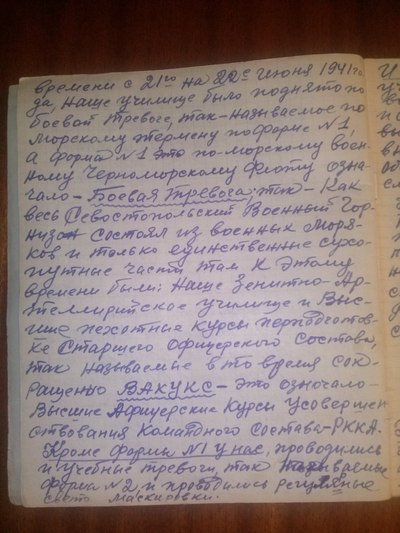 времени с 21го на 22е июня 1941 го
да, наше училище было поднято по
боевой тревоге, так-называемое по
морскому термену по форме №1
а форма №1 это по-морскому воен-
ному Черноморскому Флоту озна-
чало - Боевая тревога, так-как
весь Севостопольский Военный Гор-
низон состоял из военных моря-
ков и только единственные сухо-
путные части там к этому
времени были: Наше Зенитно-Ар-
теллирийское училище и Выс-
шие пехотные курсы переподготов-
ке Старшего офицерского Состава,
так называемые в то время сок-
ращенно ВАКУКС - это означало-
Высшие Афицерские Курсы Усовершен
ствования Командного Состава-РККА.
Кроме форма №1 у нас, проводились
и учебные тревоги, так называемые
форма №2 и проводились регуляные
свето маскировки.